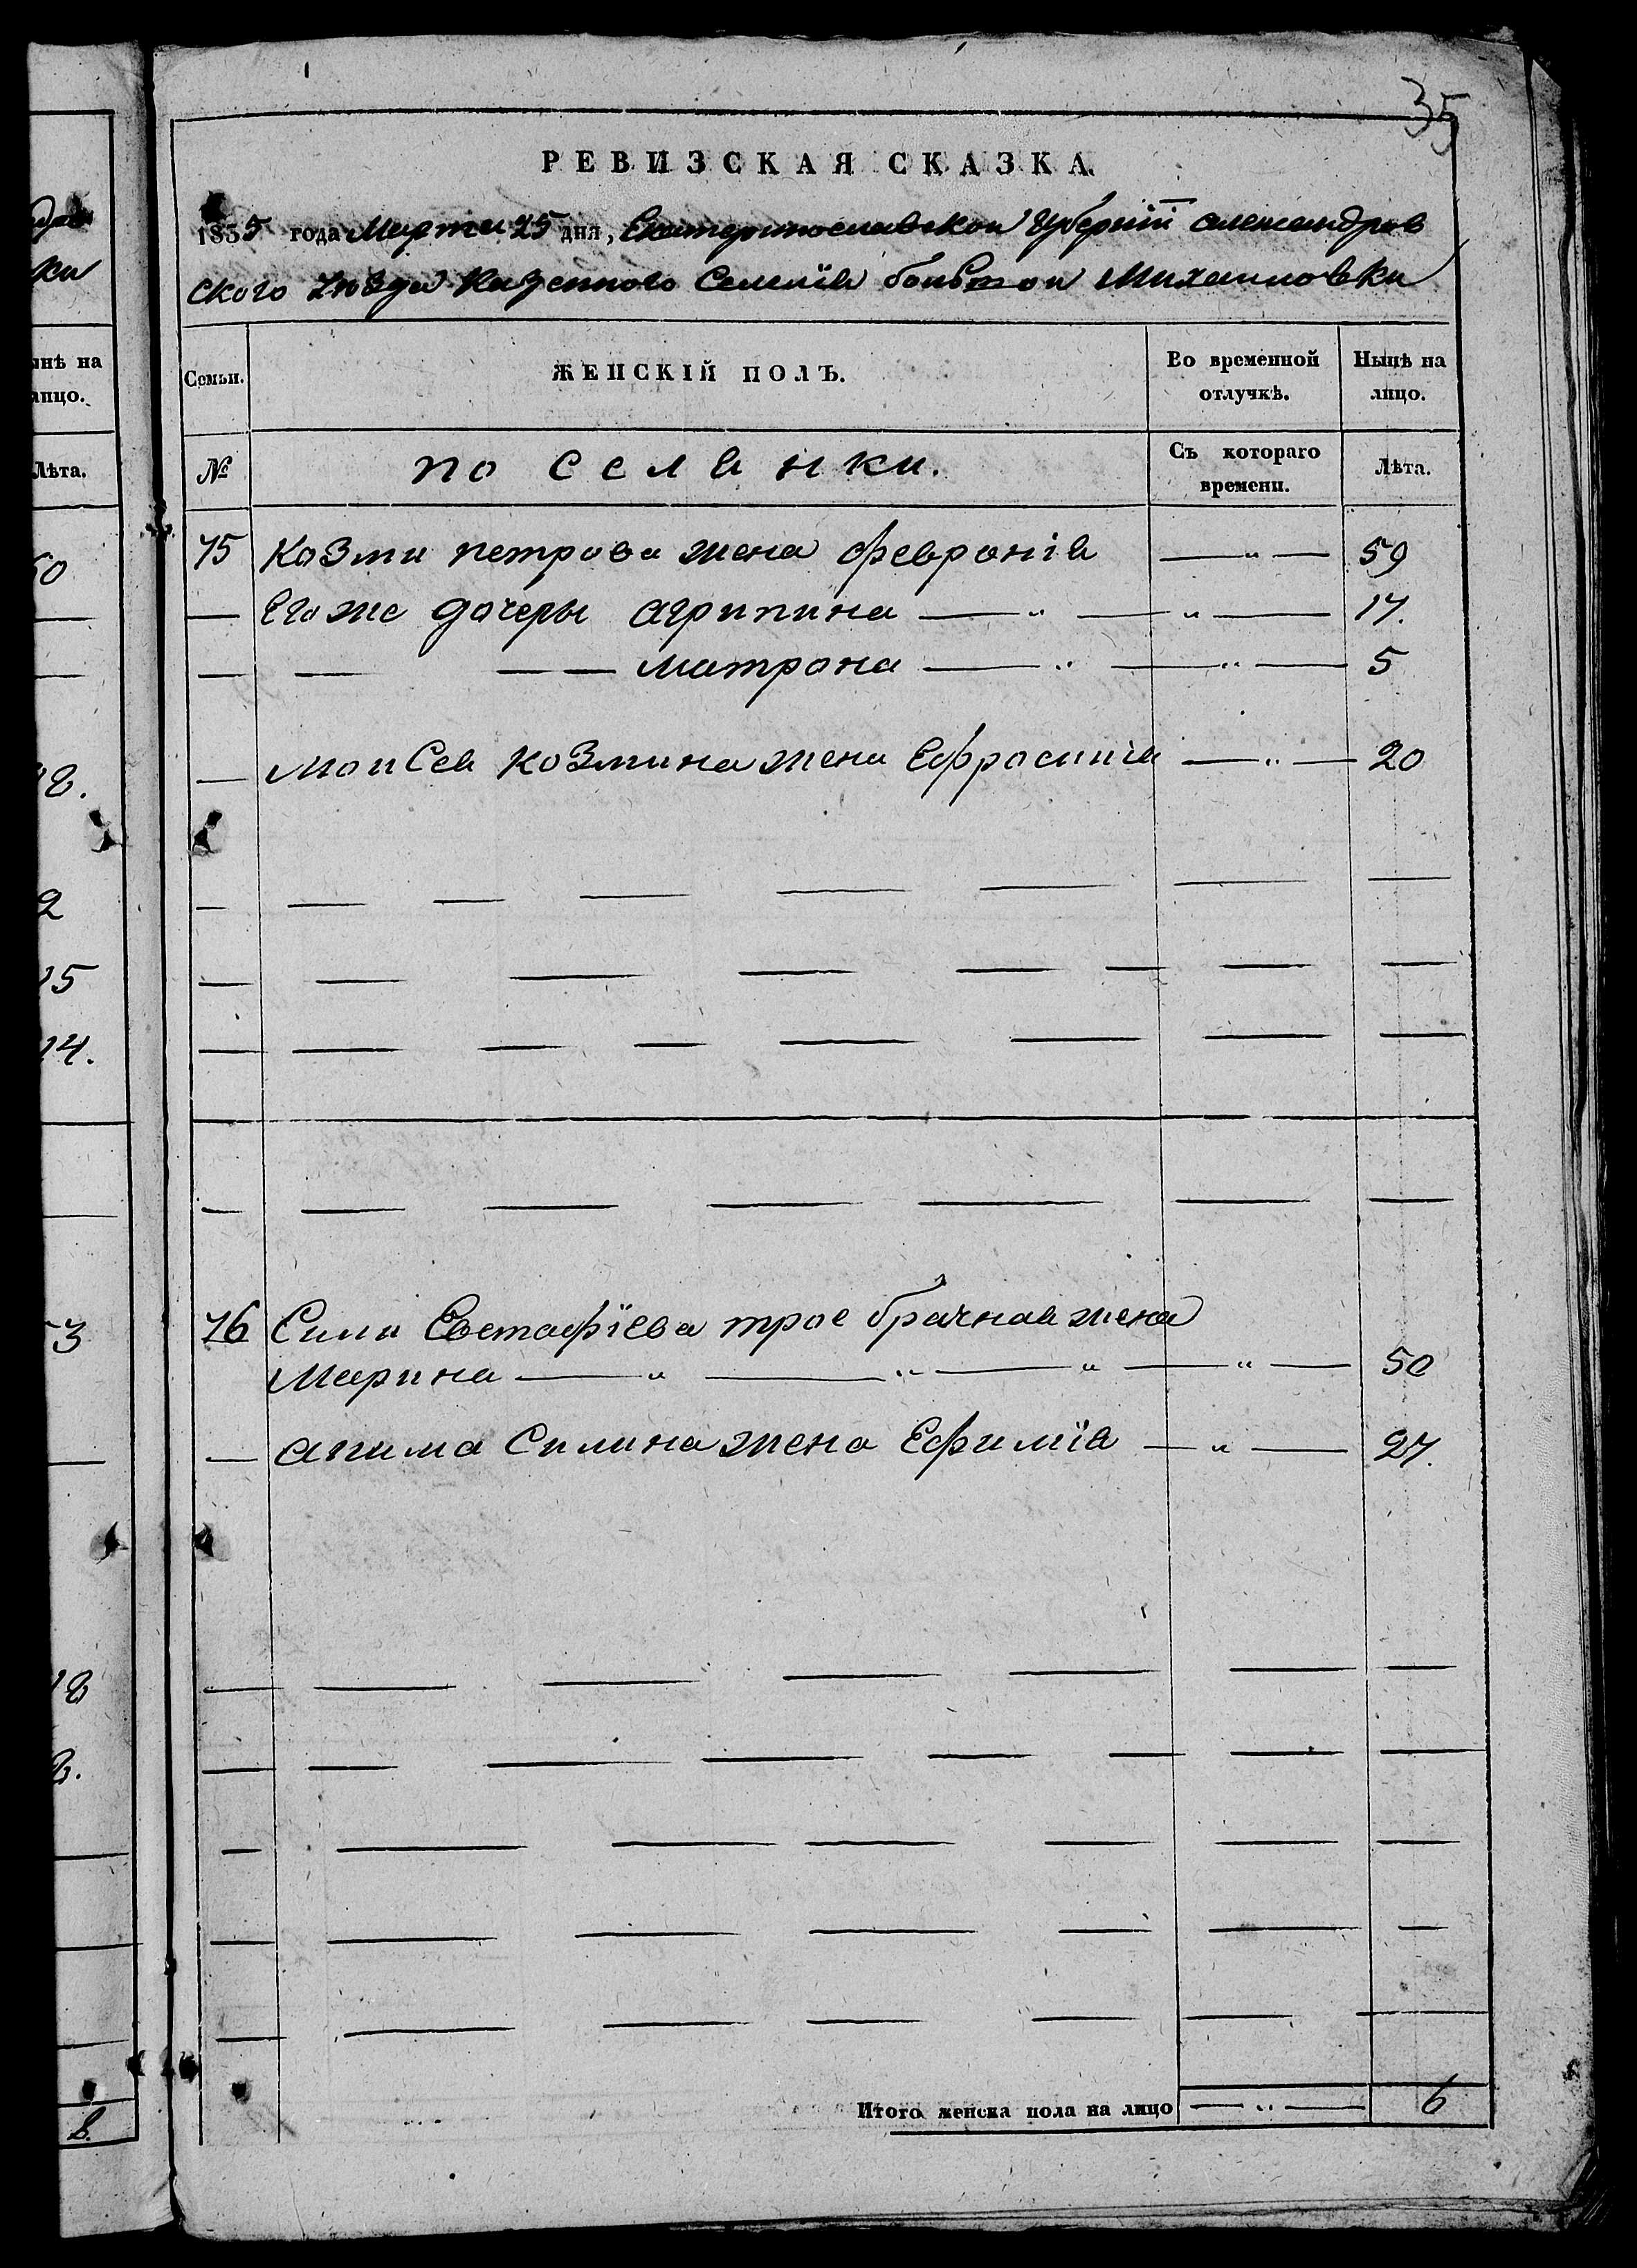 35
РЕВИЗСКАЯ СКАЗКА.
1835 года Марта 25 дня, Екатеринославской Губерніи александров
ского уѣзда Казенного Селенія большой Михаиловки
Семьи.
ЖЕНСКІЙ ПОЛЪ.
Во временной отлучкѣ.
Нынѣ на лицо.
№
поселянки.
Съ котораго времени.
Лѣта.
75 Козми петрова жена февронія — „ — 59
— Его же дочеры агрипина — „ — „ — 17.
— — — матрона — „ — „ — 5
— Моисея козмина жена Ефросинія — „ — 20
76 Сили Евстафіева трое брачная жена
Марина — „ — „ — „ — „ — 50
— акима Силина жена Ефимія — „ — 27.
Итого женска пола на лицо — „ — 6
нѣ на
лицо.
Лѣта.
50
18.
2
15
14.
53
18